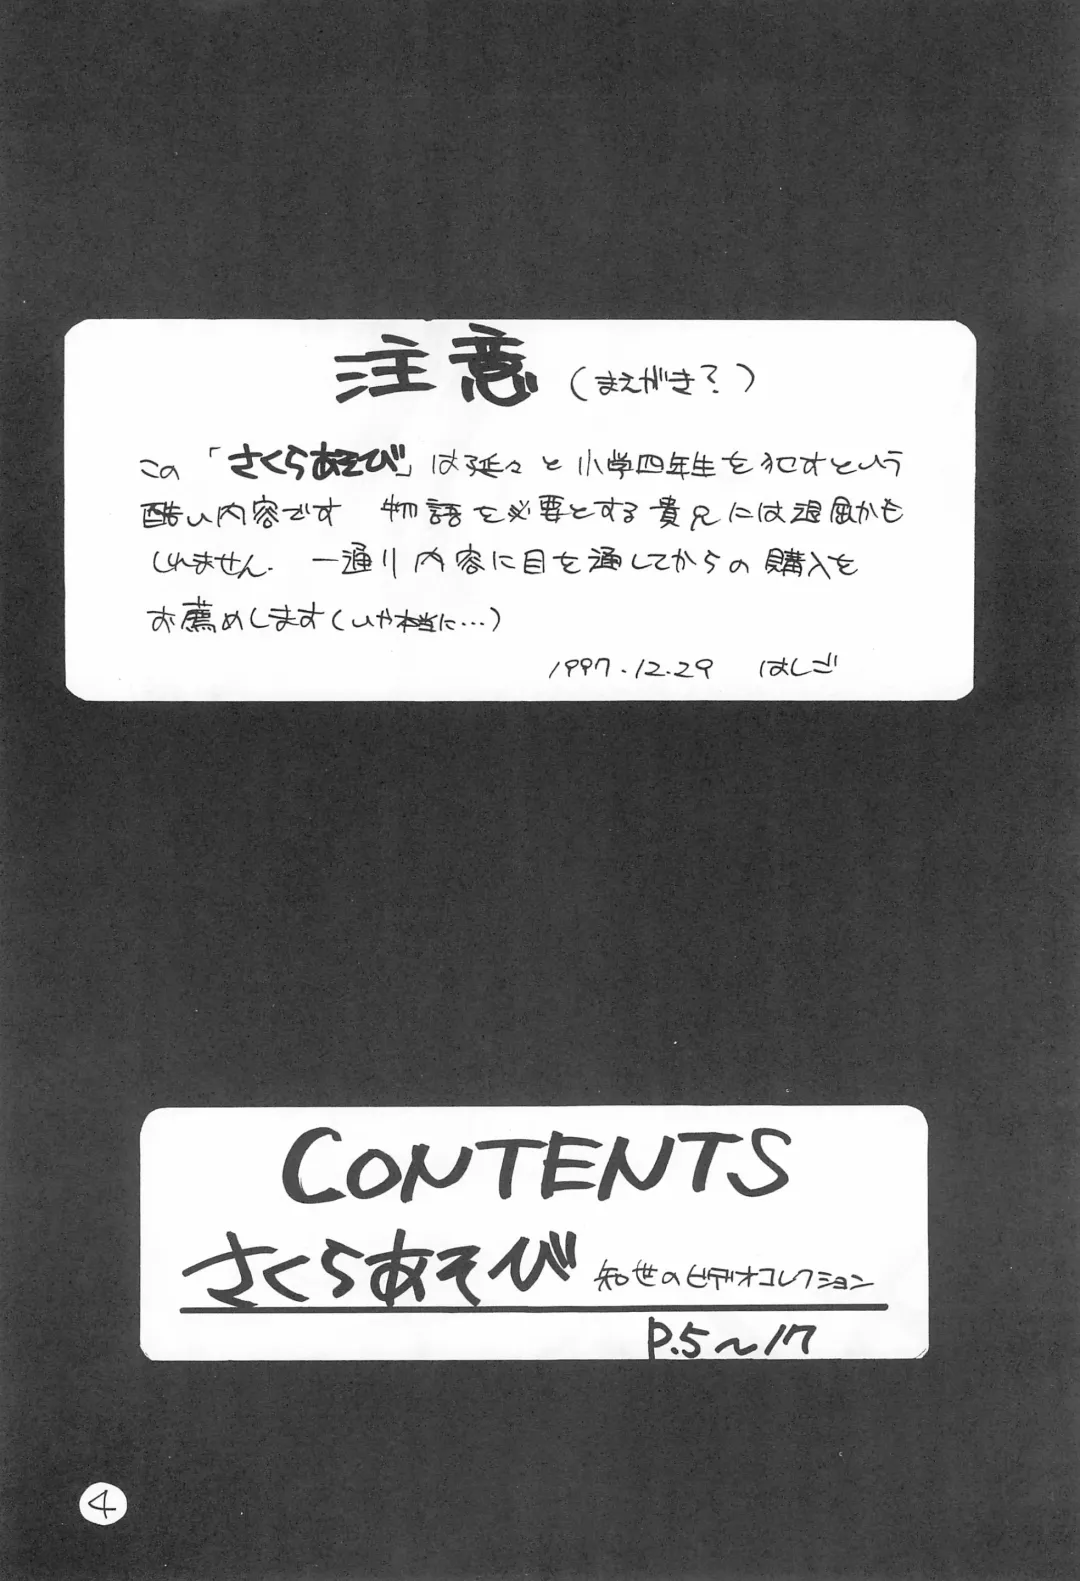 注意(まえがき?)
この「さくらあそび」は延々と小学四年生を犯すという
酷い内容です 物語を必要とする貴兄には退屈かも
しれません. 一通り内容に目を通してからの購入を
お薦めします(いや本当に…)
1997.12.29 はしご
CONTENTS
さくらあそび 知世のビデオコレクション
P.5〜17
4